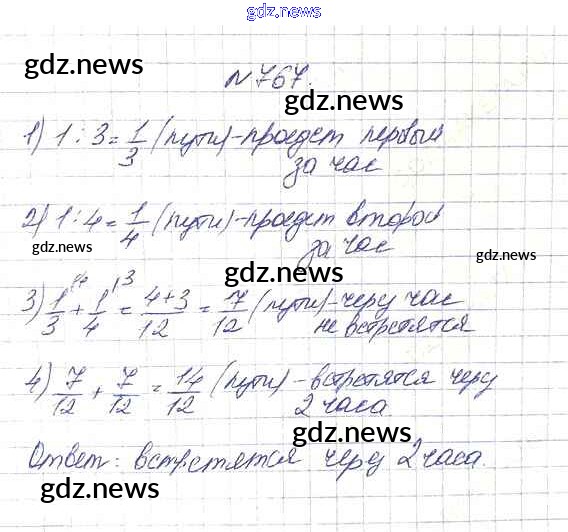 gdz.news
gdz.news
№767.
gdz.news
1) 1 : 3 = 1/3 (пути) - проедет первый
за час
2) 1 : 4 = 1/4 (пути) - проедет второй
за час
gdz.news
gdz.news
gdz.news
3) 1/3 ⁴ + 1/4 ³ = 4+3/12 = 7/12 (пути) - через час
не встретятся
4) 7/12 + 7/12 = 14/12 (пути) - встретятся через
2 часа.
gdz.news
Ответ: встретятся через 2 часа.
gdz.news